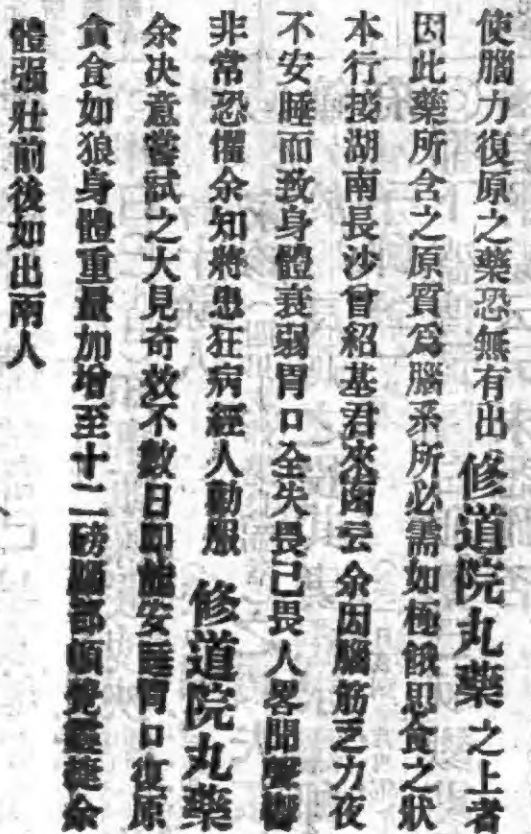 使腦力復原之藥恐無有出修道院丸藥之上者
因此藥所含之原質爲腦系所必需如極餓思食之狀
本行接湖南長沙曾紹基君來函云余因腦筋乏力夜
不安睡而致身體衰弱胃口全失畏己畏人畧聞聲響
非常恐懼余知將患狂病經人勸服修道院丸藥
余决意嘗試之大見奇效不數日即能安睡胃口復原
貪食如狼身體重量加增至十二磅腦部頓覺靈捷余
體强壯前後如出兩人